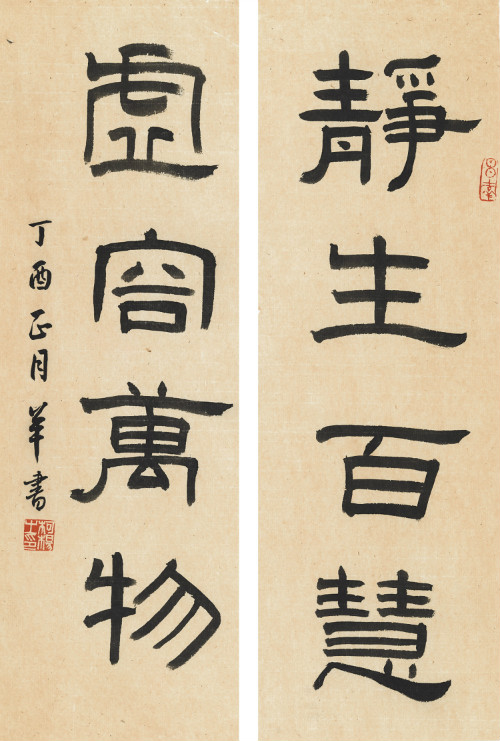 靜生百慧
虛容萬物
丁酉正月羊書